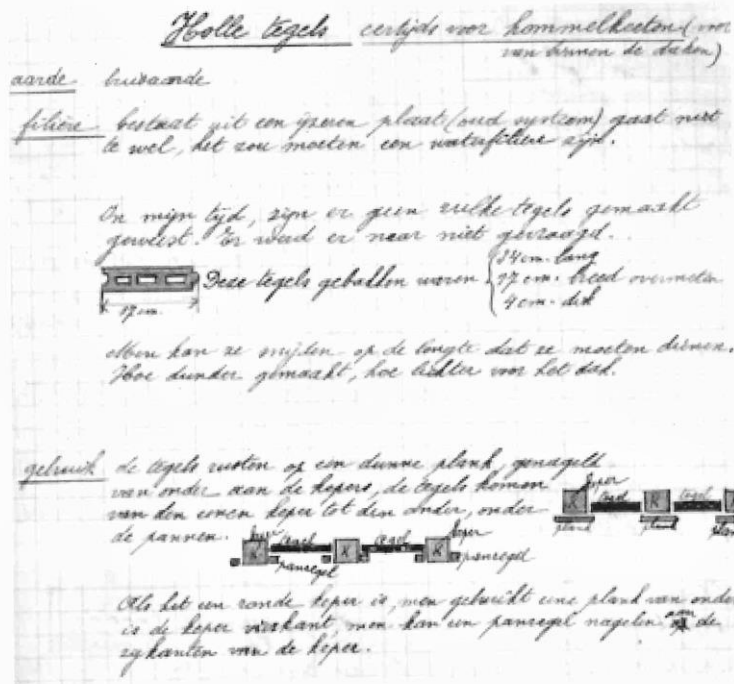 Holle tegels eertijds voor hommelkeeten (voor
van binnen de daken)
aarde
filière bestaat uit een ijzeren plaat (oud systeem) gaat niet
te wel, het zou moeten een waterfiliere zijn.
In mijn tijd, zijn er geen zulke tegels gemaakt
geweest. Er werd er naar niet gevraagd.
34 cm. lang
Deze tegels gebakken waren 17 cm. breed overmeten
4 cm. dik
17 cm.
Men kan ze snijden op de lengte dat ze moeten dienen.
Hoe dunder gemaakt, hoe lichter voor het dak.
gebruik de tegels rusten op een dunne plank genageld
van onder aan de kepers, de tegels komen
van den eenen keper tot den ander, onder
de pannen.
keper tegel tegel
K K K
plank plank plank
keper tegel tegel keper
K K K
panregel panregel
Als het een ronde keper is, men gebruikt eene plank van onder
is de keper vierkant, men kan een panregel nagelen aan de
zijkanten van de keper.